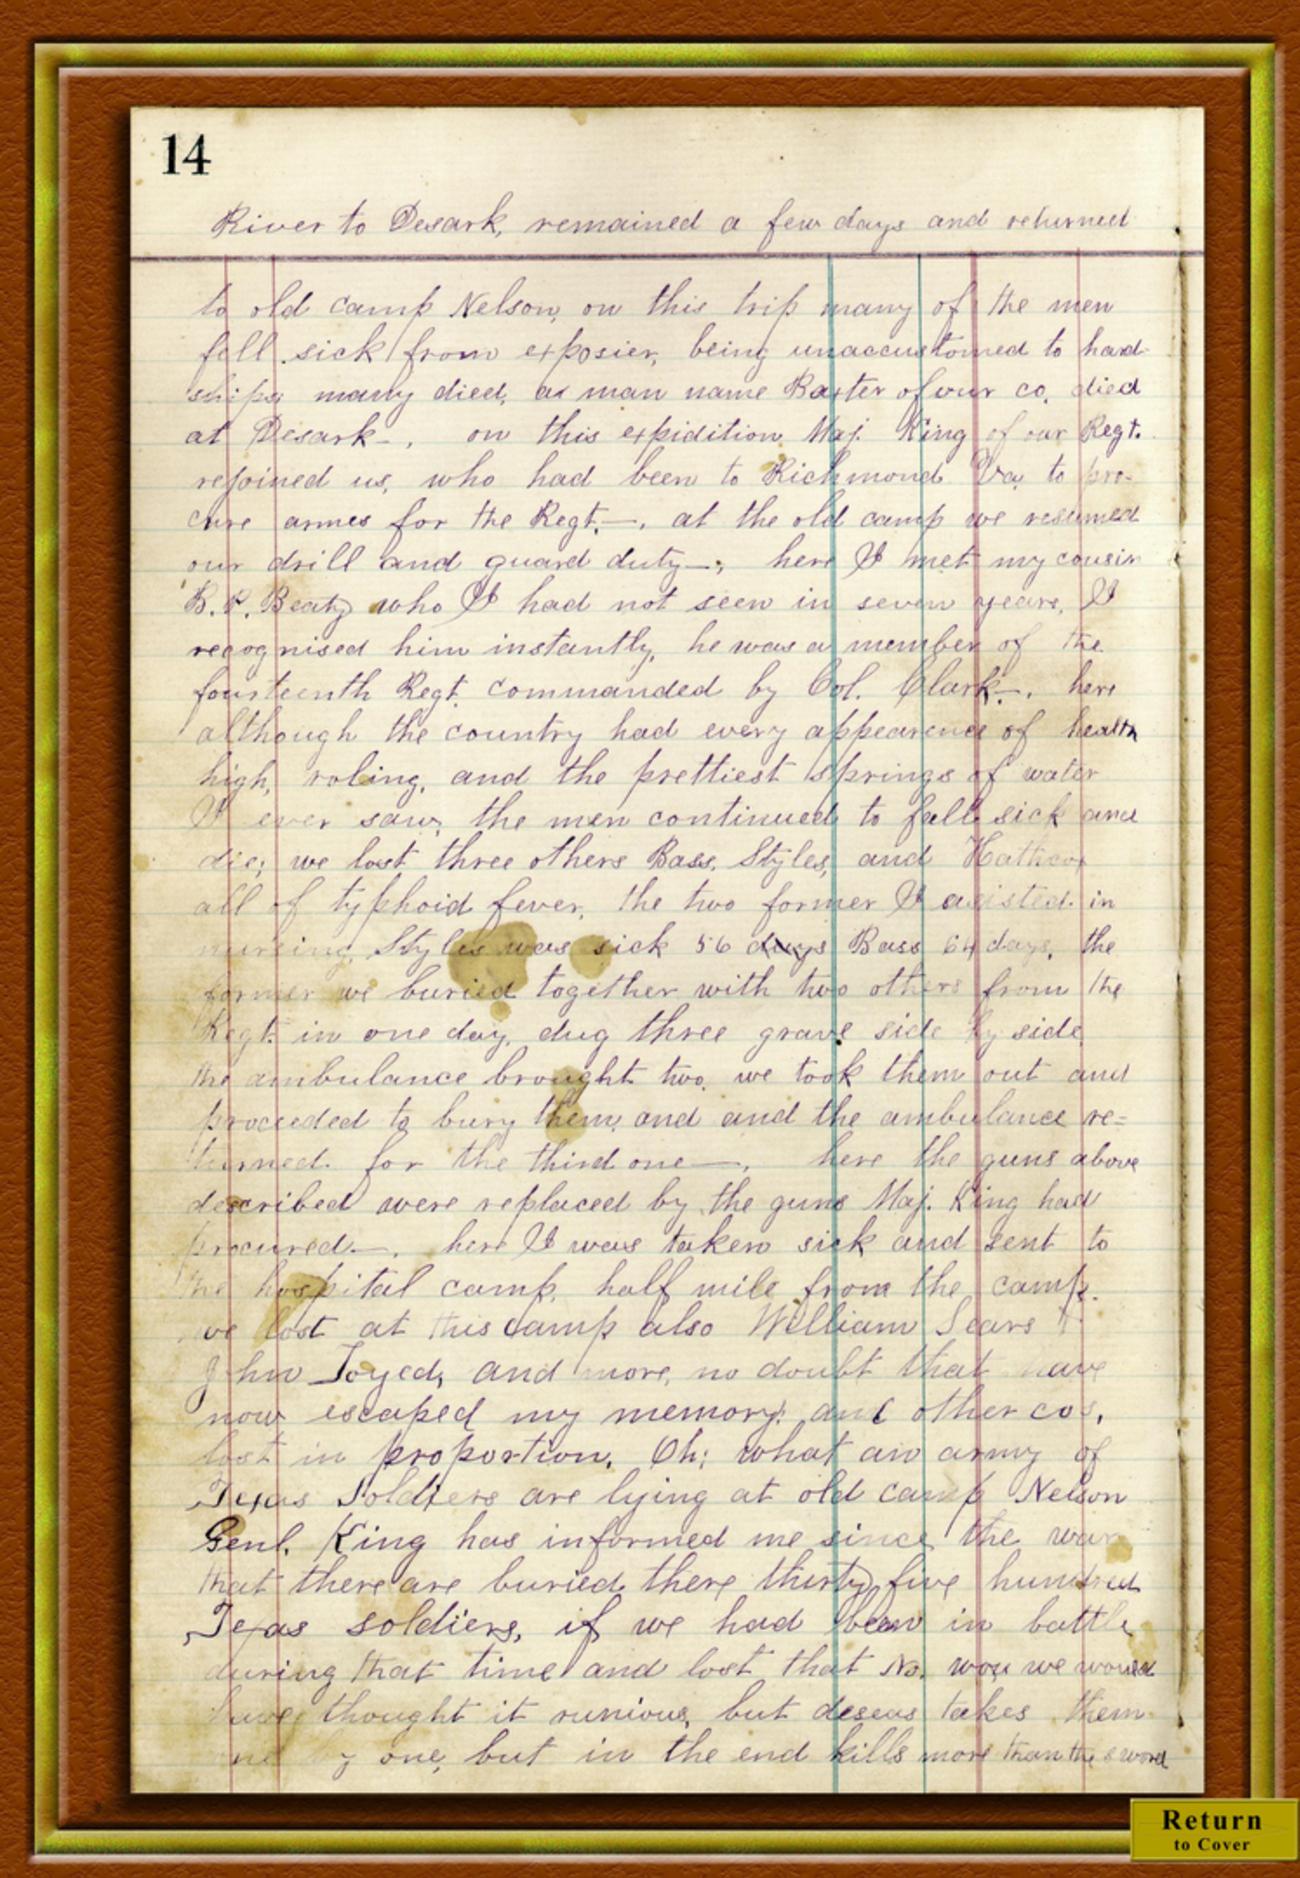 14
River to Desark, remained a few days and returned
to old camp Nelson, on this trip many of the men
fell sick from exposier, being unaccustomed to hard-
ships many died, a man name Baxter of our co. died
at Desark—. on this expidition Maj. King of our Regt.
rejoined us, who had been to Richmond Va, to pro-
cure armes for the Regt.—. at the old camp we resumed
our drill and guard duty—, here I met my cousin
B. P. Beaty who I had not seen in seven years, I
recognised him instantly, he was a member of the
fourteenth Regt. commanded by Col. Clark—. here
although the country had every appearence of health
high, roling, and the prettiest springs of water
I ever saw, the men continued to fall sick and
die; we lost three others Bass, Styles, and
all of typhoid fever, the two former I assisted in
nursing, Styles was sick 56 days Bass 64 days, the
former we buried together with two others from the
Regt. in one day, dug three grave side by side
the ambulance brought two, we took them out and
proceeded to bury them, and and the ambulance re=
turned for the third one—, here the guns above
described were replaced by the guns Maj. King had
procured.—. here I was taken sick and sent to
the hospital camp, half mile from the camp.
we lost at this camp also William Sears
John Joyed, and more, no doubt that have
now escaped my memory; and other cos,
lost in proportion. Oh; what an army of
Texas Soldiers are lying at old camp Nelson
Genl. King has informed me since the war
that there are buried there thirty five hundred
Texas soldiers, if we had been in battle
during that time and lost that No. we would
have thought it runious, but deseas takes them
one by one, but in the end kills more than the sword
Return
to Cover